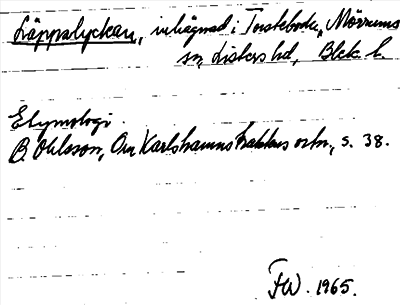 Läppalyckan, inhägnad i Torstaboda, Mörrums
sn, Listers hd, Blek. l.
Etymologi.
B. Ohlsson, Om Karlshamnstraktens ortn., s. 38.
FW. 1965.